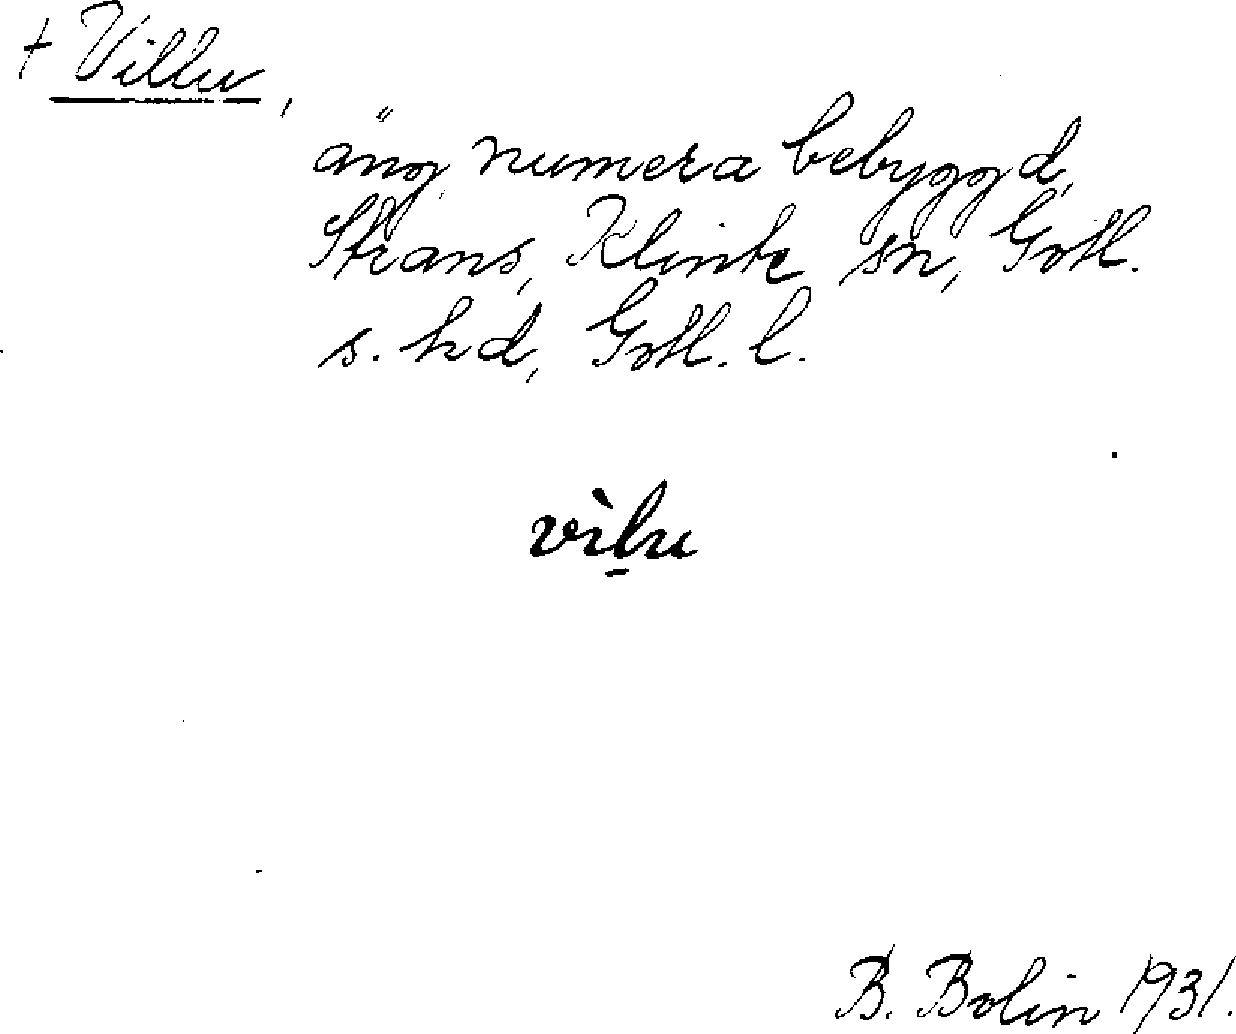 + Villu,
äng numera bebyggd,
Strans, Klinte sn, Gotl.
s. hd, Gotl. l.
vìl̠u
B. Bolin 1931.